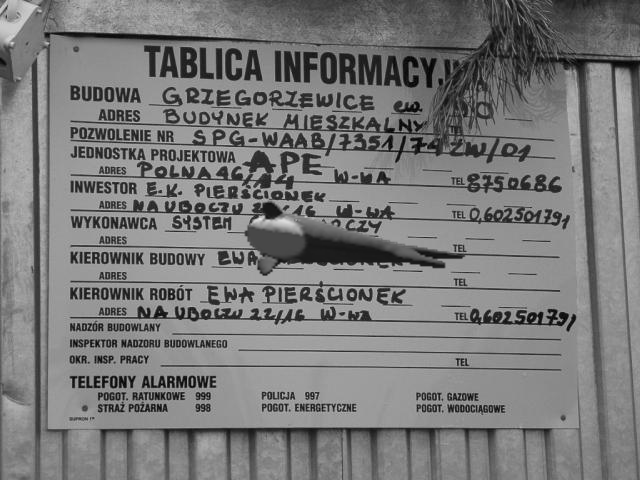 TABLICA INFORMACYJNA
BUDOWA GRZEGORZEWICE
ADRES BUDYNEK MIESZKALNY
POZWOLENIE NR SPG-WAAB/7351/74 ZW/01
JEDNOSTKA PROJEKTOWA APE
ADRES POLNA 46/ W-WA TEL 8750686
INWESTOR E.K. PIERŚCIONEK
ADRES NA UBOCZU 22/16 W-WA TEL 0,602501791
WYKONAWCA SYSTEM
ADRES TEL
KIEROWNIK BUDOWY EWA
ADRES TEL
KIEROWNIK ROBÓT EWA PIERŚCIONEK
ADRES NA UBOCZU 22/16 W-wa TEL 0,602501791
NADZÓR BUDOWLANY
INSPEKTOR NADZORU BUDOWLANEGO
OKR. INSP. PRACY TEL
TELEFONY ALARMOWE
POGOT. RATUNKOWE 999 POLICJA 997 POGOT. GAZOWE
STRAŻ POŻARNA 998 POGOT. ENERGETYCZNE POGOT. WODOCIĄGOWE